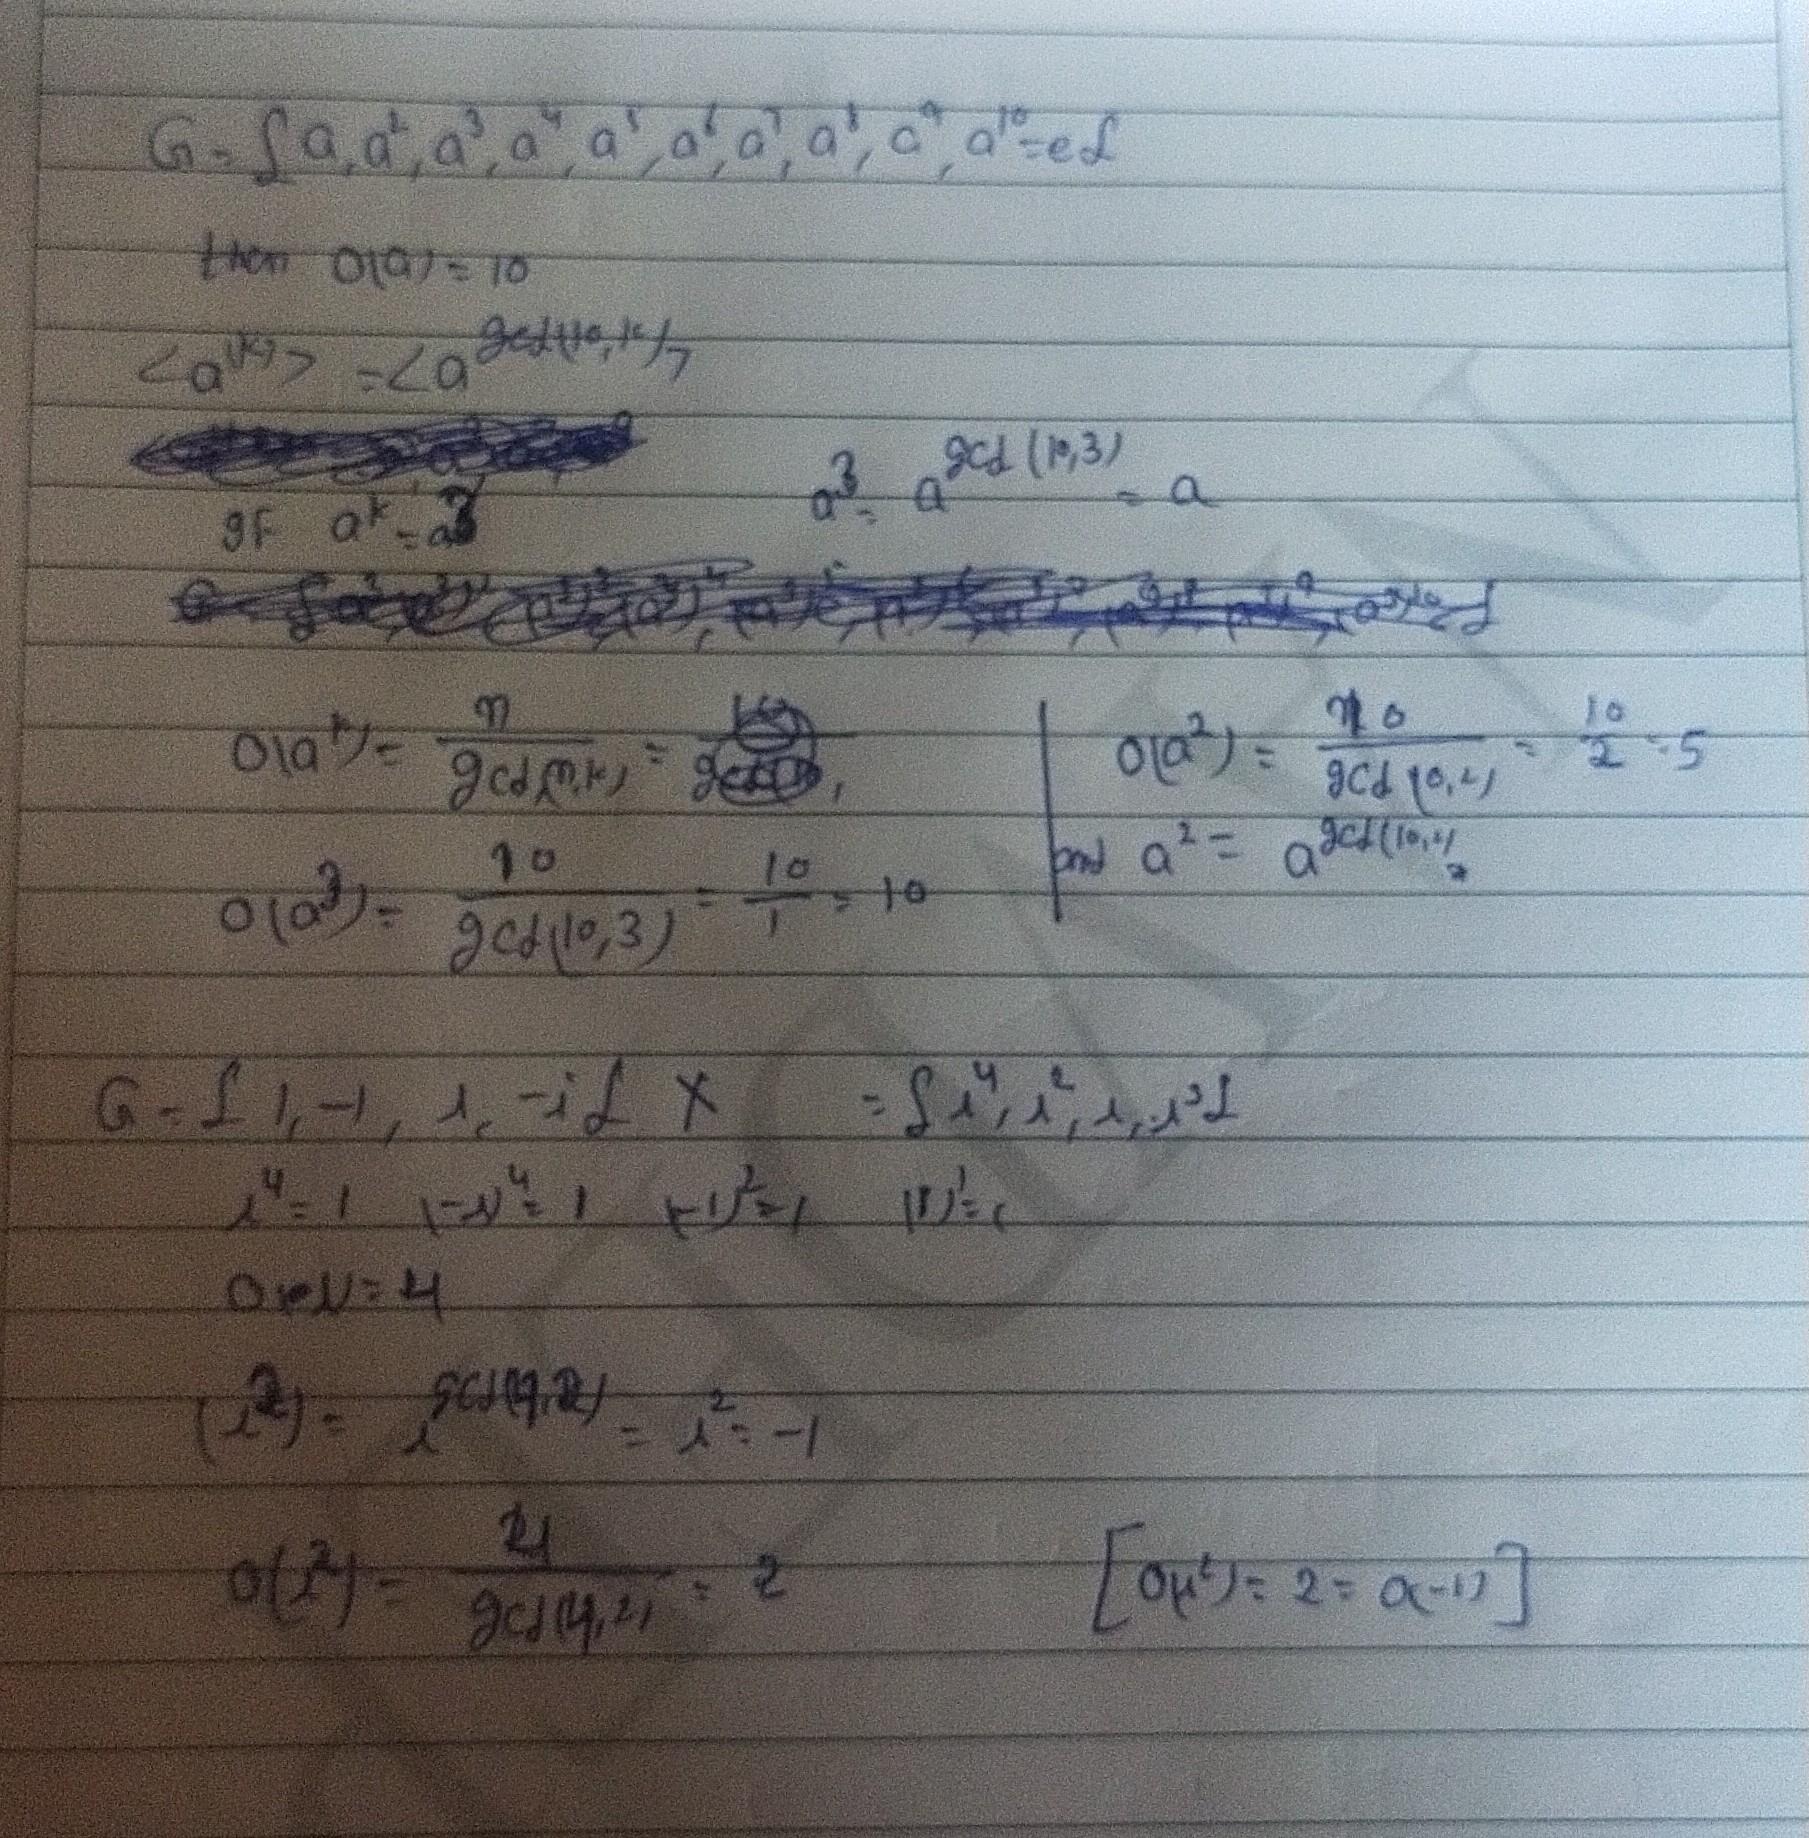 G = { a, a², a³, a⁴, a⁵, a⁶, a⁷, a⁸, a⁹, a¹⁰=e }
then O(a) = 10
<a^(k)> = <a^gcd(10,k)>
If a^k = a³ a³ = a^gcd(10,3) = a
O(a^k) = n/gcd(n,k) = O(a²) = 10/gcd(10,2) = 10/2 = 5
O(a³) = 10/gcd(10,3) = 10/1 = 10 and a² = a^gcd(10,2)
G = { 1, -1, i, -i } X = { i⁴, i², i, i³ }
i⁴ = 1 (-i)⁴ = 1 (-1)² = 1 (1)¹ = 1
= 4
(i²) = i^gcd(4,2) = i² = -1
O(i²) = 4/gcd(4,2) = 2 [O(i²) = 2 = O(-1)]